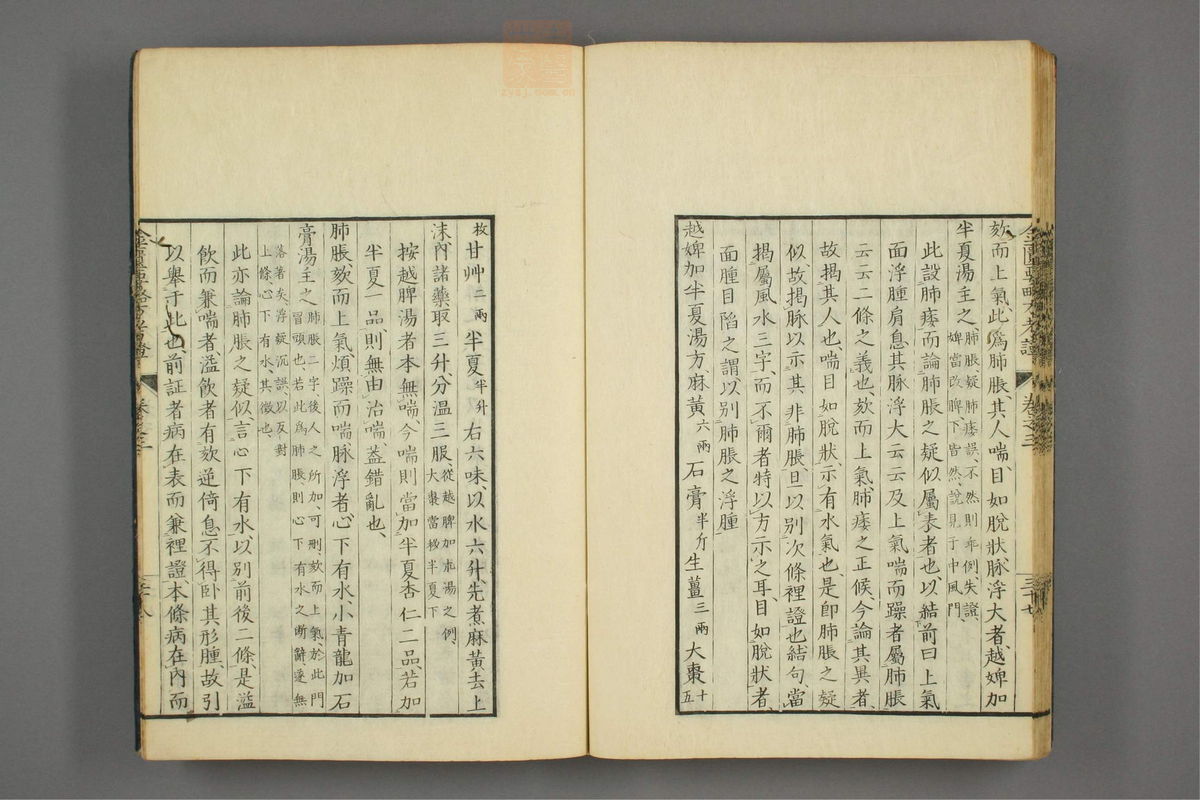 欬而上氣、此爲肺脹、其人喘、目如脫狀、脉浮大者、越婢加
半夏湯主之、肺脹、疑肺痿誤、不然則乖例、失證、
婢當改脾、下皆然、說見于中風門、
此設肺痿而論肺脹之疑似屬表者也、以結前曰上氣
面浮腫肩息其脉浮大云云及上氣喘而躁者屬肺脹
云云二條之義也、欬而上氣肺痿之正候、今論其異者、
故揭其人也、喘目如脫狀、示有水氣也、是卽肺脹之疑
似、故揭脉以示其非肺脹、旦以別次條裡證也、結句、當
揭屬風水三字、而不爾者特以方示之耳、目如脫狀者、
面腫目陷之謂、以別肺脹之浮腫
越婢加半夏湯方、麻黃六兩石膏半斤生薑三兩大棗十
五
枚甘艸二兩半夏半升右六味、以水六升、先煮麻黃去上
沫、內諸藥、取三升、分溫三服、從越脾加朮湯之例、
大棗當移半夏下
按越脾湯者本無喘、今喘則當加半夏杏仁二品、若加
半夏一品、則無由治喘、蓋錯亂也、
肺脹欬而上氣、煩躁而喘、脉浮者、心下有水、小青龍加石
膏湯主之、肺脹二字後人之所加、可刪、欬而上氣、於此門
冒頭也、若此爲肺脹則心下有水之斷辭遂無
落著矣、浮疑沉誤、以反對
上條、心下有水、其徵也、
此亦論肺脹之疑似、言心下有水、以別前後二條、是溢
飲而兼喘者、溢飲者有欬逆倚息不得臥其形腫、故引
以舉于此也、前証者病在表而兼裡證、本條病在內而
金匱要略方考證
卷之三
三十七
金匱要略方考證
卷之三
三十八